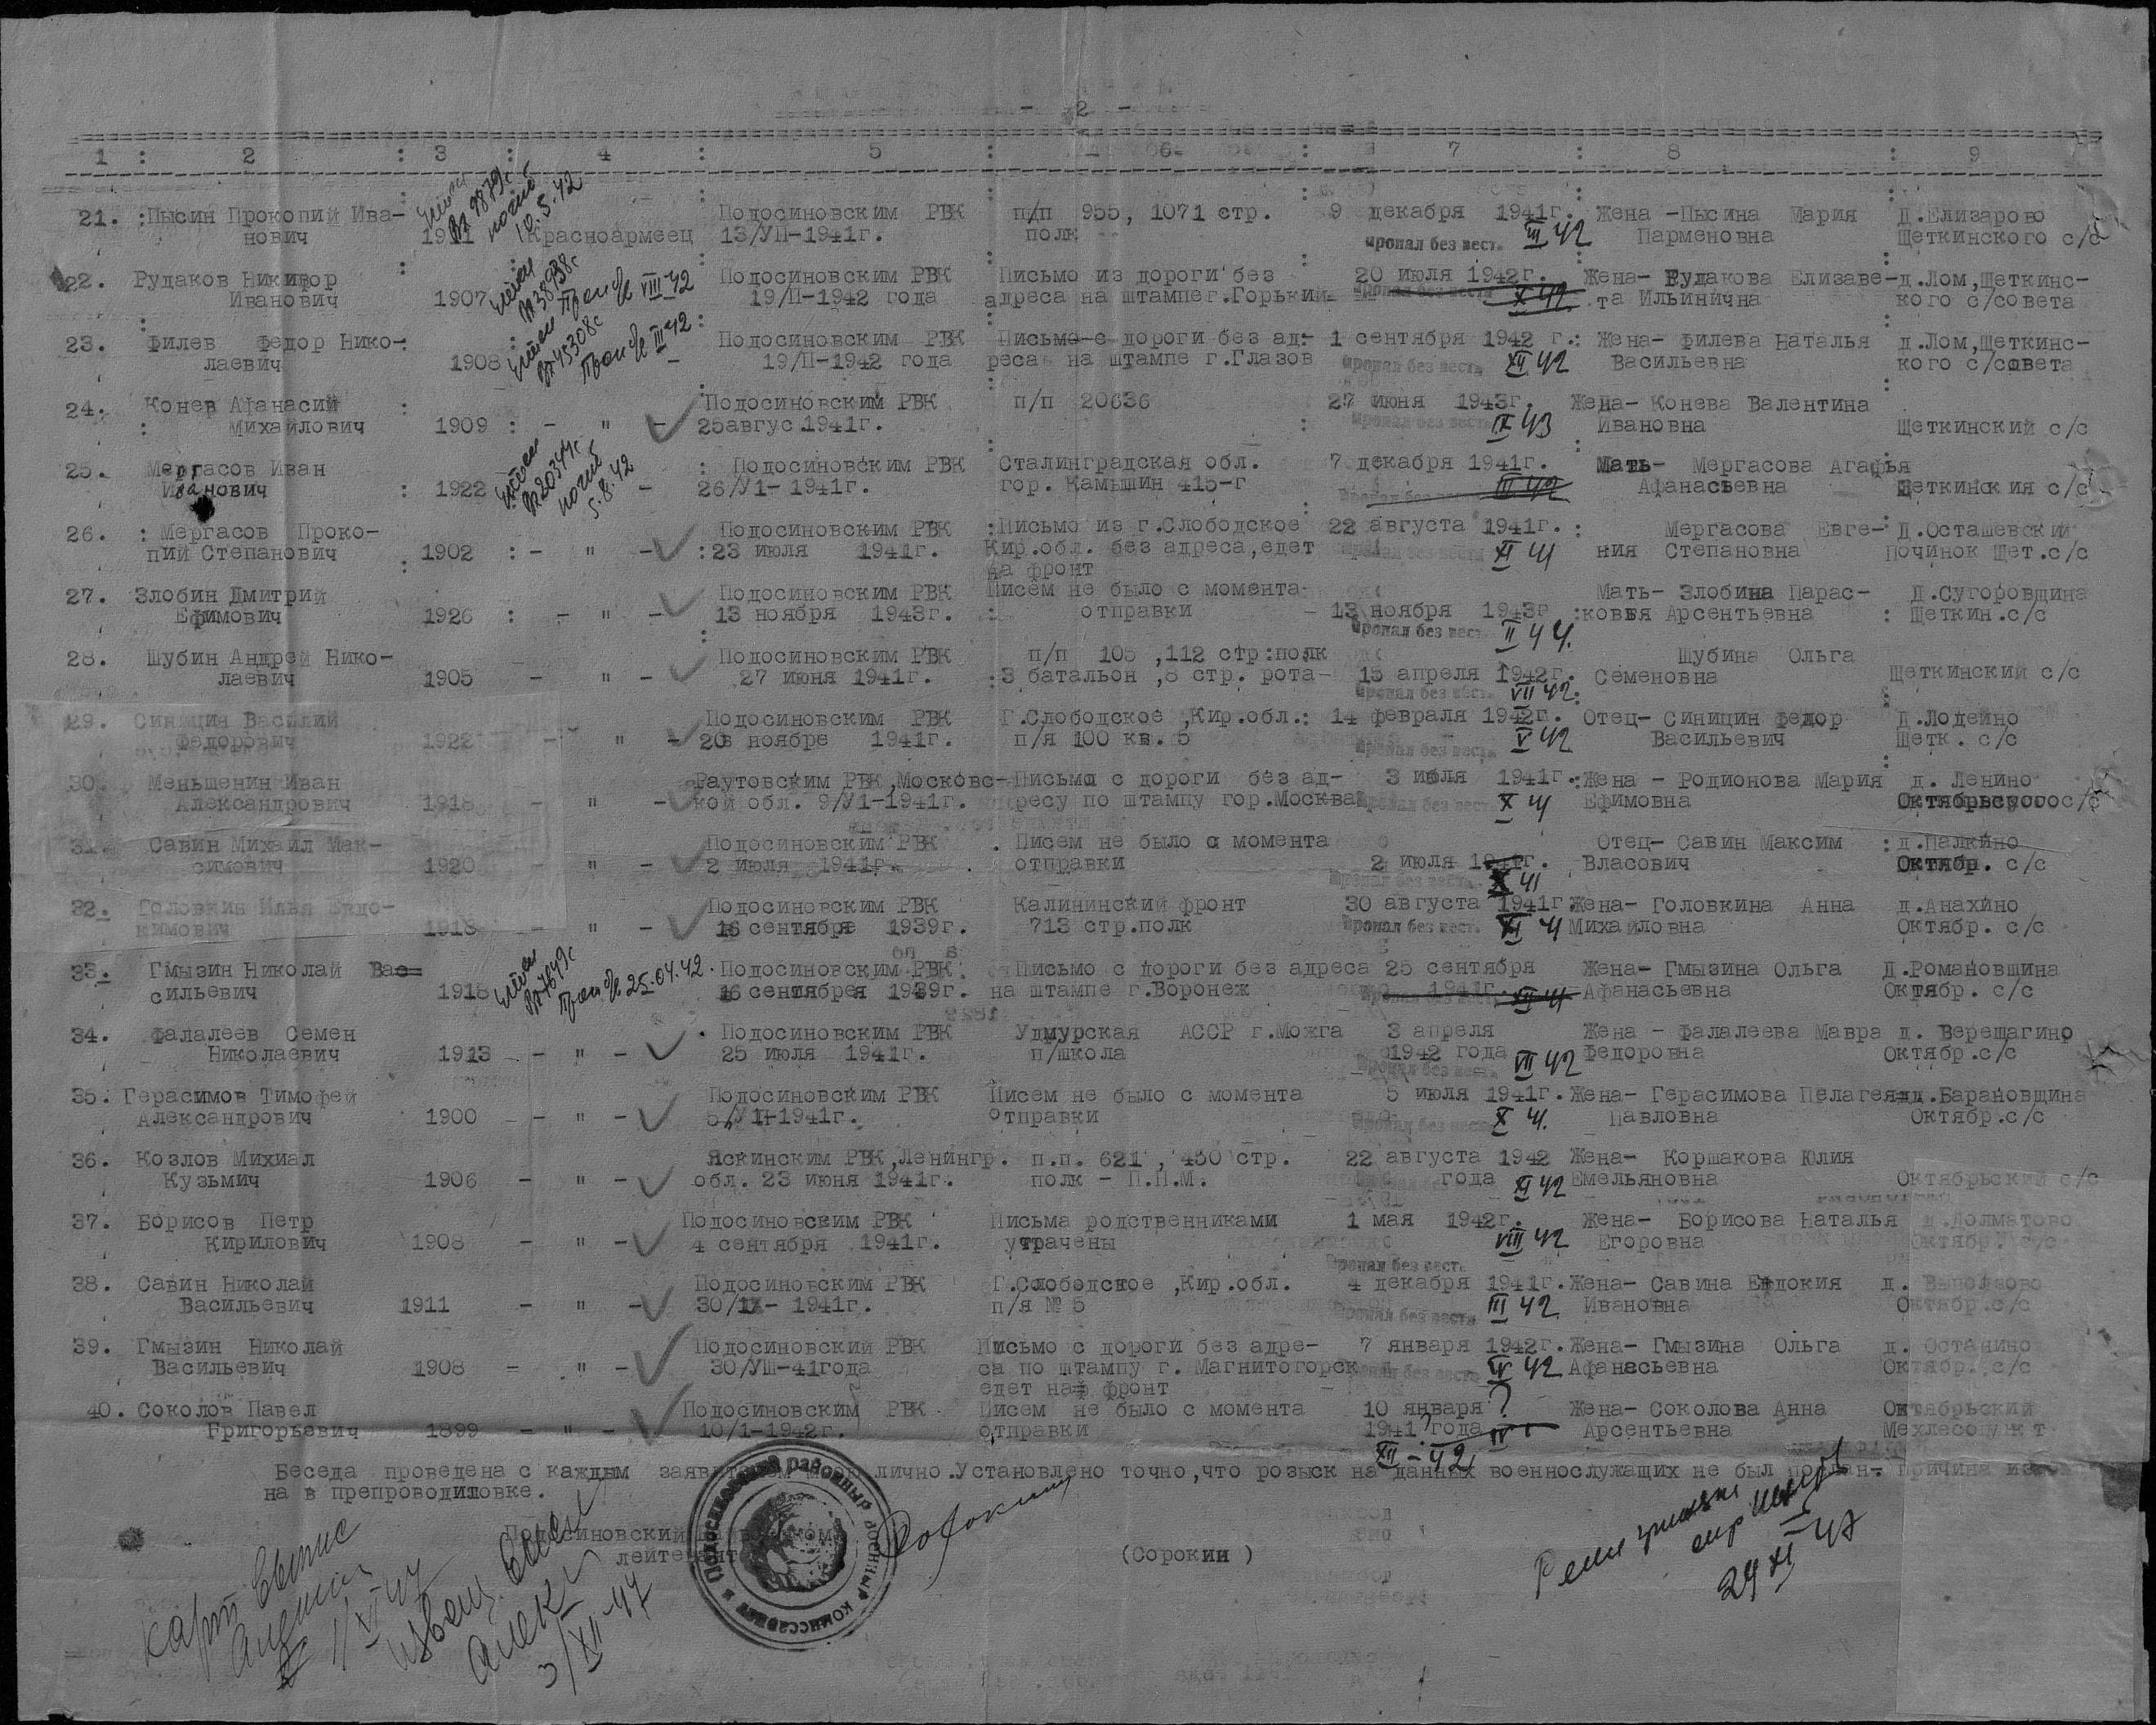 - 2 -
1 : 2 : 3 : 4 : 5 : 6 : 7 : 8 : 9
21. :Пысин Прокопий Ива- Подосиновским РВК п/п 955, 1071 стр. 9 декабря 1941г. Жена -Пысина Мария Д.Елизарово
нович 1911 Красноармеец 13/УП-1941г. полк пропал без вести III 42 Парменовна Щеткинского с/с
22. Рудаков Никифор Подосиновским РВК Письмо из дороги без 20 июля 1942г. Жена- Рудакова Елизаве- д.Лом,Щеткинс-
Иванович 1907 19/П-1942 года адреса на штампег.Горький X 42 та Ильинична кого с/совета
23. Филев Федор Нико- Подосиновским РВК Письмо с дороги без ад- 1 сентября 1942 г. Жена- Филева Наталья д.Лом,Щеткинс-
лаевич 1908 - 19/П-1942 года реса на штампе г.Глазов пропал без вести XII 42 Васильевна кого с/совета
24. Конев Афанасий Подосиновским РВК п/п 20636 27 июня 1943г. Жена- Конева Валентина
Михайлович 1909 : - " - 25авгус.1941г. пропал без вести IX 43 Ивановна Щеткинский с/с
25. Мергасов Иван Подосиновским РВК Сталинградская обл. 7 декабря 1941г. Мать- Мергасова Агафья
Иванович : 1922 - 26/У1- 1941г. гор. Камышин 415-г III 42 Афанасьевна Щеткинския с/с
26. : Мергасов Проко- Подосиновским РВК :Письмо из г.Слободское 22 августа 1941г. : Мергасова Евге- Д.Осташевский
пий Степанович 1902 : - " - :23 июля 1941г. Кир.обл. без адреса,едет XI 41 ния Степановна Починок Щет.с/с
на фронт
27. Злобин Дмитрий Подосиновским РВК Писем не было с момента Мать- Злобина Парас- Д.Сугоровщина
Ефимович 1926 : - " - 13 ноября 1943г. : отправки - 13 ноября 1943г :ковья Арсентьевна : Щеткин.с/с
пропал без вести II 44.
28. Шубин Андрей Нико- Подосиновским РВК п/п 105 ,112 стр:полк Шубина Ольга
лаевич 1905 - " - 27 июня 1941г. :3 батальон ,8 стр. рота- 15 апреля 1942г. Семеновна Щеткинский с/с
пропал без вести VII 42.
29. Синицин Василий Подосиновским РВК Г.Слободское ,Кир.обл.: 14 февраля 1942г. Отец- Синицин Федор Д.Лодейно
Федорович 1922 - " - 20в ноябре 1941г. п/я 100 кв. 5 пропал без вести V 42 Васильевич Щетк. с/с
30. Меньшенин Иван Раутовским РВК,Московс- Письма с дороги без ад- 3 июля 1941г.:Жена - Родионова Мария д. Ленино
Александрович 1918 - " - кой обл. 9/У1-1941г. ресу по штампу гор.Москва пропал без вести X 41 Ефимовна Октябрьского с/с
31. Савин Михаил Мак- Подосиновским РВК . Писем не было с момента Отец- Савин Максим : д.Палкино
симович 1920 - " - 2 июля 1941г. отправки 2 июля 1941г. Власович Октябр. с/с
пропал без вести X 41
32. Головкин Илья Евдо- Подосиновским РВК Калининский фронт 30 августа 1941г Жена- Головкина Анна д.Анахино
кимович 1918 - " - 16 сентября 1939г. 713 стр.полк пропал без вест. XI 41 Михайловна Октябр. с/с
33. Гмызин Николай Вас= Подосиновским РВК. Письмо с дороги без адреса 25 сентября Жена- Гмызина Ольга Д.Романовщина
сильевич 1918 25.04.42. 16 сентября 1939г. на штампе г.Воронеж 1941г. XII 41 Афанасьевна Октябр. с/с
34. Фалалеев Семен Подосиновским РВК Удмурская АССР г.Можга 3 апреля Жена - Фалалеева Мавра д. Верещагино
Николаевич 1913 - " - 25 июля 1941г. п/школа 1942 года VII 42 Федоровна Октябр.с/с
пропал без вести
35. Герасимов Тимофей Подосиновским РВК Писем не было с момента 5 июля 1941г. Жена- Герасимова Пелагея д.Барановщина
Александрович 1900 - " - 5/УП-1941г. отправки пропал без вести X 41. Павловна Октябр.с/с
36. Козлов Михиал Яскинским РВК,Ленингр. п.п. 621 , 450 стр. 22 августа 1942 Жена- Коршакова Юлия
Кузьмич 1906 - " - обл. 23 июня 1941г. полк - П.П.М. года XI 42 Емельяновна Октябрьский с/с
37. Борисов Петр Подосиновским РВК Письма родственниками 1 мая 1942г. Жена- Борисова Наталья д.Долматово
Кирилович 1908 - " - 4 сентября 1941г. утрачены VIII 42 Егоровна Октябр. с/с
пропал без вест.
38. Савин Николай Подосиновским РВК Г.Слободское ,Кир.обл. 4 декабря 1941г. Жена- Савина Евдокия д. Выползово
Васильевич 1911 - " - 30/IX- 1941г. п/я № 5 пропал без вести III 42 Ивановна Октябр.с/с
39. Гмызин Николай Подосиновский РВК Письмо с дороги без адре- 7 января 1942г. Жена- Гмызина Ольга д. Останино
Васильевич 1908 - " - 30/УШ-41года са по штампу г. Магнитогорск IV 42 Афанасьевна Октябр. с/с
едет на фронт
40. Соколов Павел Подосиновским РВК Писем не было с момента 10 января ? Жена- Соколова Анна Октябрьский
Григорьевич 1899 - " - 10/1-1942г. отправки 1941? года Арсентьевна Мехлесопункт
XII - 42
Беседа проведена с каждым заявителем лично.Установлено точно,что розыск на данных военнослужащих не был подан- Причина
на в препроводиловке.
Подосиновский райвоенком
лейтенант (Сорокин )
Подосиновский районный военный комиссариат
24 XI 47
3/XII-47